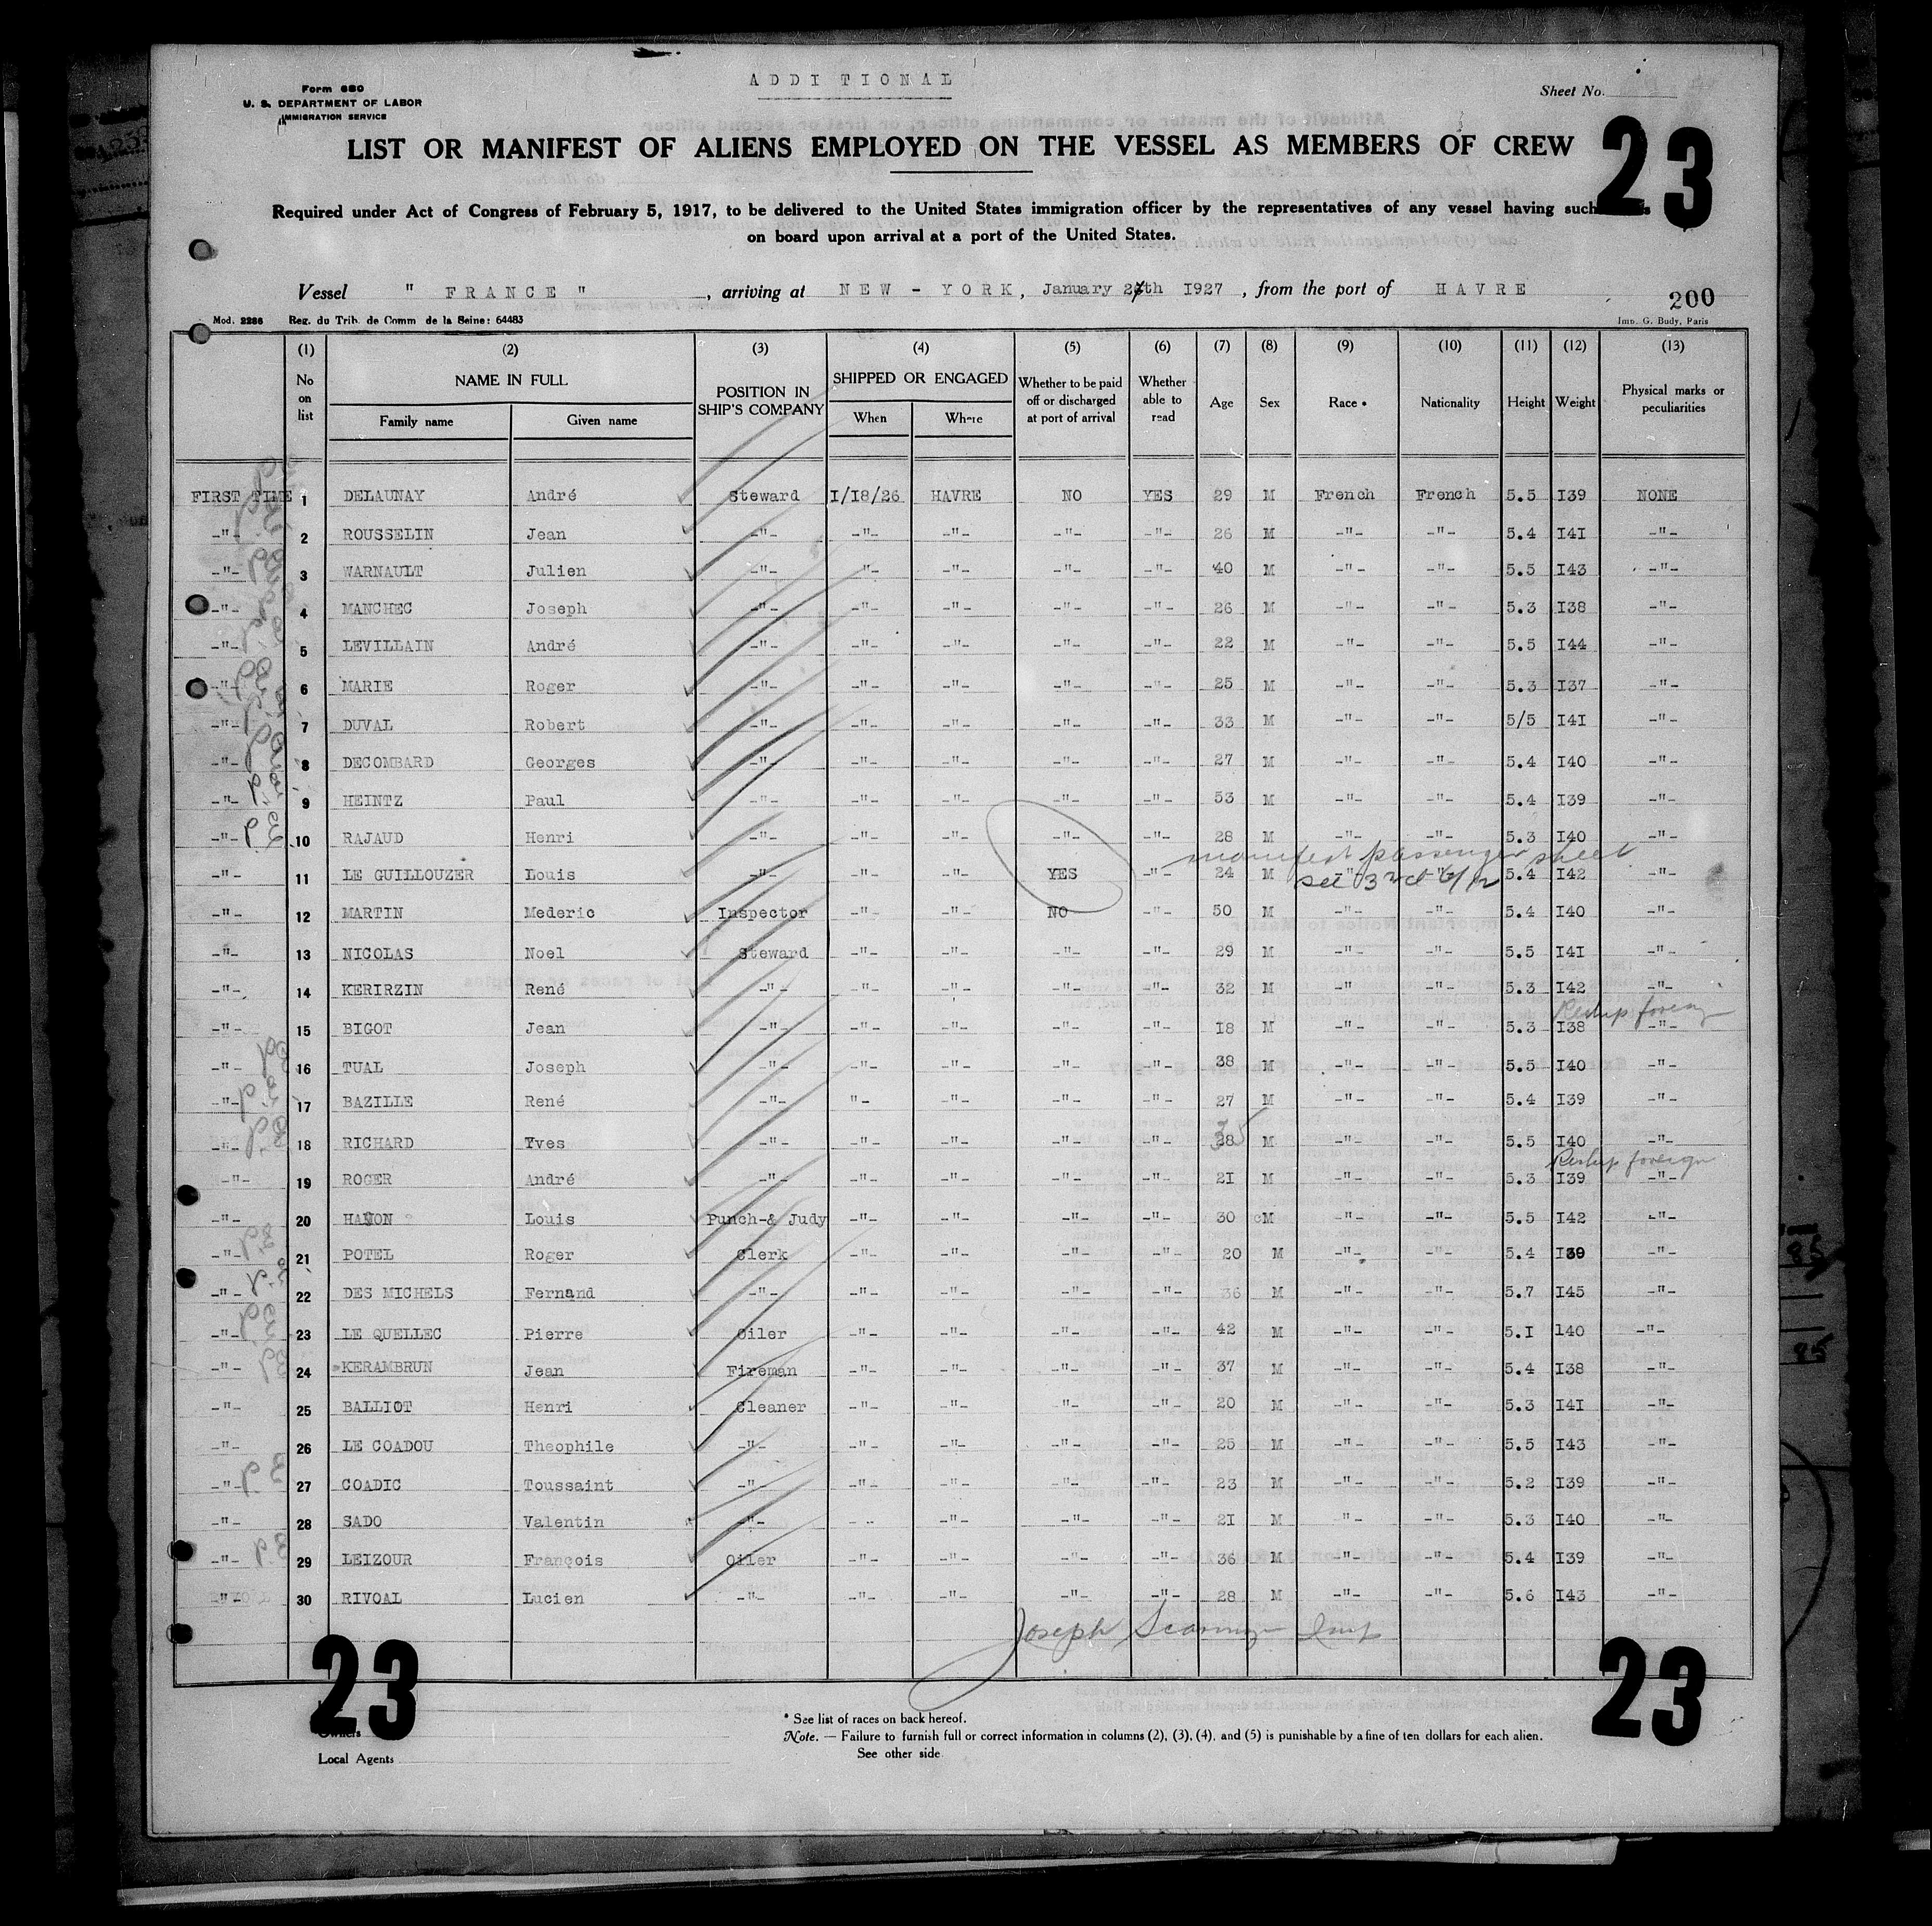 ADDITIONAL
Form 680
U. S. DEPARTMENT OF LABOR
IMMIGRATION SERVICE
Sheet No.
23
LIST OR MANIFEST OF ALIENS EMPLOYED ON THE VESSEL AS MEMBERS OF CREW
Required under Act of Congress of February 5, 1917, to be delivered to the United States immigration officer by the representatives of any vessel having such
on board upon arrival at a port of the United States.
Vessel " FRANCE " , arriving at NEW - YORK, January th I927 , from the port of HAVRE
200
Mod. 2286 Reg. du Trib. de Comm de la Seine: 64483 Imp. G. Budy, Paris
(1) (2) (3) (4) (5) (6) (7) (8) (9) (10) (11) (12) (13)
No on list NAME IN FULL Family name Given name POSITION IN SHIP'S COMPANY SHIPPED OR ENGAGED When Where Whether to be paid off or discharged at port of arrival Whether able to read Age Sex Race • Nationality Height Weight Physical marks or peculiarities
FIRST TIME 1 DELAUNAY André Steward I/I8/26 HAVRE NO YES 29 M French French 5.5 I39 NONE
-"- 2 ROUSSELIN Jean -"- -"- -"- -"- -"- 26 M -"- -"- 5.4 I4I -"-
-"- 3 WARNAULT Julien -"- -"- -"- -"- -"- 40 M -"- -"- 5.5 I43 -"-
-"- 4 MANCHEC Joseph -"- -"- -"- -"- -"- 26 M -"- -"- 5.3 I38 -"-
-"- 5 LEVILLAIN André -"- -"- -"- -"- -"- 22 M -"- -"- 5.5 I44 -"-
-"- 6 MARIE Roger -"- -"- -"- -"- -"- 25 M -"- -"- 5.3 I37 -"-
-"- 7 DUVAL Robert -"- -"- -"- -"- -"- 33 M -"- -"- 5/5 I4I -"-
-"- 8 DECOMBARD Georges -"- -"- -"- -"- -"- 27 M -"- -"- 5.4 I40 -"-
-"- 9 HEINTZ Paul -"- -"- -"- -"- -"- 53 M -"- -"- 5.4 I39 -"-
-"- 10 RAJAUD Henri -"- -"- -"- -"- -"- 28 M -"- -"- 5.3 I40 -"-
manifest passenger sheet
-"- 11 LE GUILLOUZER Louis -"- -"- -"- YES -"- 24 M -"- -"- 5.4 I42 -"-
see 3rd 6/12
-"- 12 MARTIN Mederic Inspector -"- -"- NO -"- 50 M -"- -"- 5.4 I40 -"-
-"- 13 NICOLAS Noel Steward -"- -"- -"- -"- 29 M -"- -"- 5.5 I4I -"-
-"- 14 KERIRZIN René -"- -"- -"- -"- -"- 32 M -"- -"- 5.3 I42 -"-
Reship foreign
-"- 15 BIGOT Jean -"- -"- -"- -"- -"- I8 M -"- -"- 5.3 I38 -"-
-"- 16 TUAL Joseph -"- -"- -"- -"- -"- 38 M -"- -"- 5.5 I40 -"-
-"- 17 BAZILLE René -"- "- -"- -"- -"- 27 M -"- -"- 5.4 I39 -"-
-"- 18 RICHARD Yves -"- -"- -"- -"- -"- 35 M -"- -"- 5.5 I40 -"-
Reship foreign
-"- 19 ROGER André -"- -"- -"- -"- -"- 2I M -"- -"- 5.3 I39 -"-
-"- 20 HANON Louis Punch-& Judy -"- -"- -"- -"- 30 M -"- -"- 5.5 I42 -"-
-"- 21 POTEL Roger Clerk -"- -"- -"- -"- 20 M -"- -"- 5.4 I39 -"-
-"- 22 DES MICHELS Fernand -"- -"- -"- -"- -"- 36 M -"- -"- 5.7 I45 -"-
-"- 23 LE QUELLEC Pierre Oiler -"- -"- -"- -"- 42 M -"- -"- 5.I 140 -"-
-"- 24 KERAMBRUN Jean Fireman -"- -"- -"- -"- 37 M -"- -"- 5.4 I38 -"-
-"- 25 BALLIOT Henri Cleaner -"- -"- -"- -"- 20 M -"- -"- 5.3 I4I -"-
-"- 26 LE COADOU Theophile -"- -"- -"- -"- -"- 25 M -"- -"- 5.5 I43 -"-
-"- 27 COADIC Toussaint -"- -"- -"- -"- -"- 23 M -"- -"- 5.2 I39 -"-
-"- 28 SADO Valentin -"- - - -"- -"- -"- 2I M -"- -"- 5.3 I40 -"-
-"- 29 LEIZOUR François Oiler -"- -"- -"- -"- 36 M -"- -"- 5.4 I39 -"-
-"- 30 RIVOAL Lucien -"- -"- -"- -"- -"- 28 M -"- -"- 5.6 I43 -"-
Joseph
23
23
Owners
Local Agents
* See list of races on back hereof.
Note. — Failure to furnish full or correct information in columns (2), (3), (4), and (5) is punishable by a fine of ten dollars for each alien.
See other side